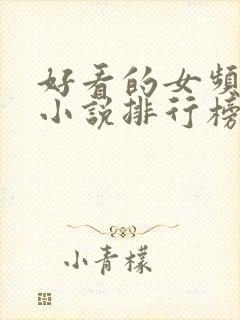 好看的女頻
小說排行榜
小青檬